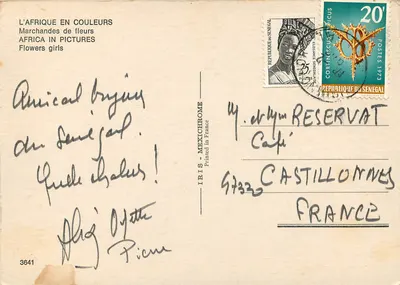 L'AFRIQUE EN COULEURS
Marchandes de fleurs
AFRICA IN PICTURES
Flowers girls
Amical bonjour
du Sénégal.
Quelle chaleur !
Odette
Pierre
3641
IRIS - MEXICHROME
Printed in France
REPUBLIQUE DU SENEGAL
25
20F
POSTES 1972
REPUBLIQUE DU SENEGAL
M. et Mme RESERVAT
Café
47330 CASTILLONNES
FRANCE